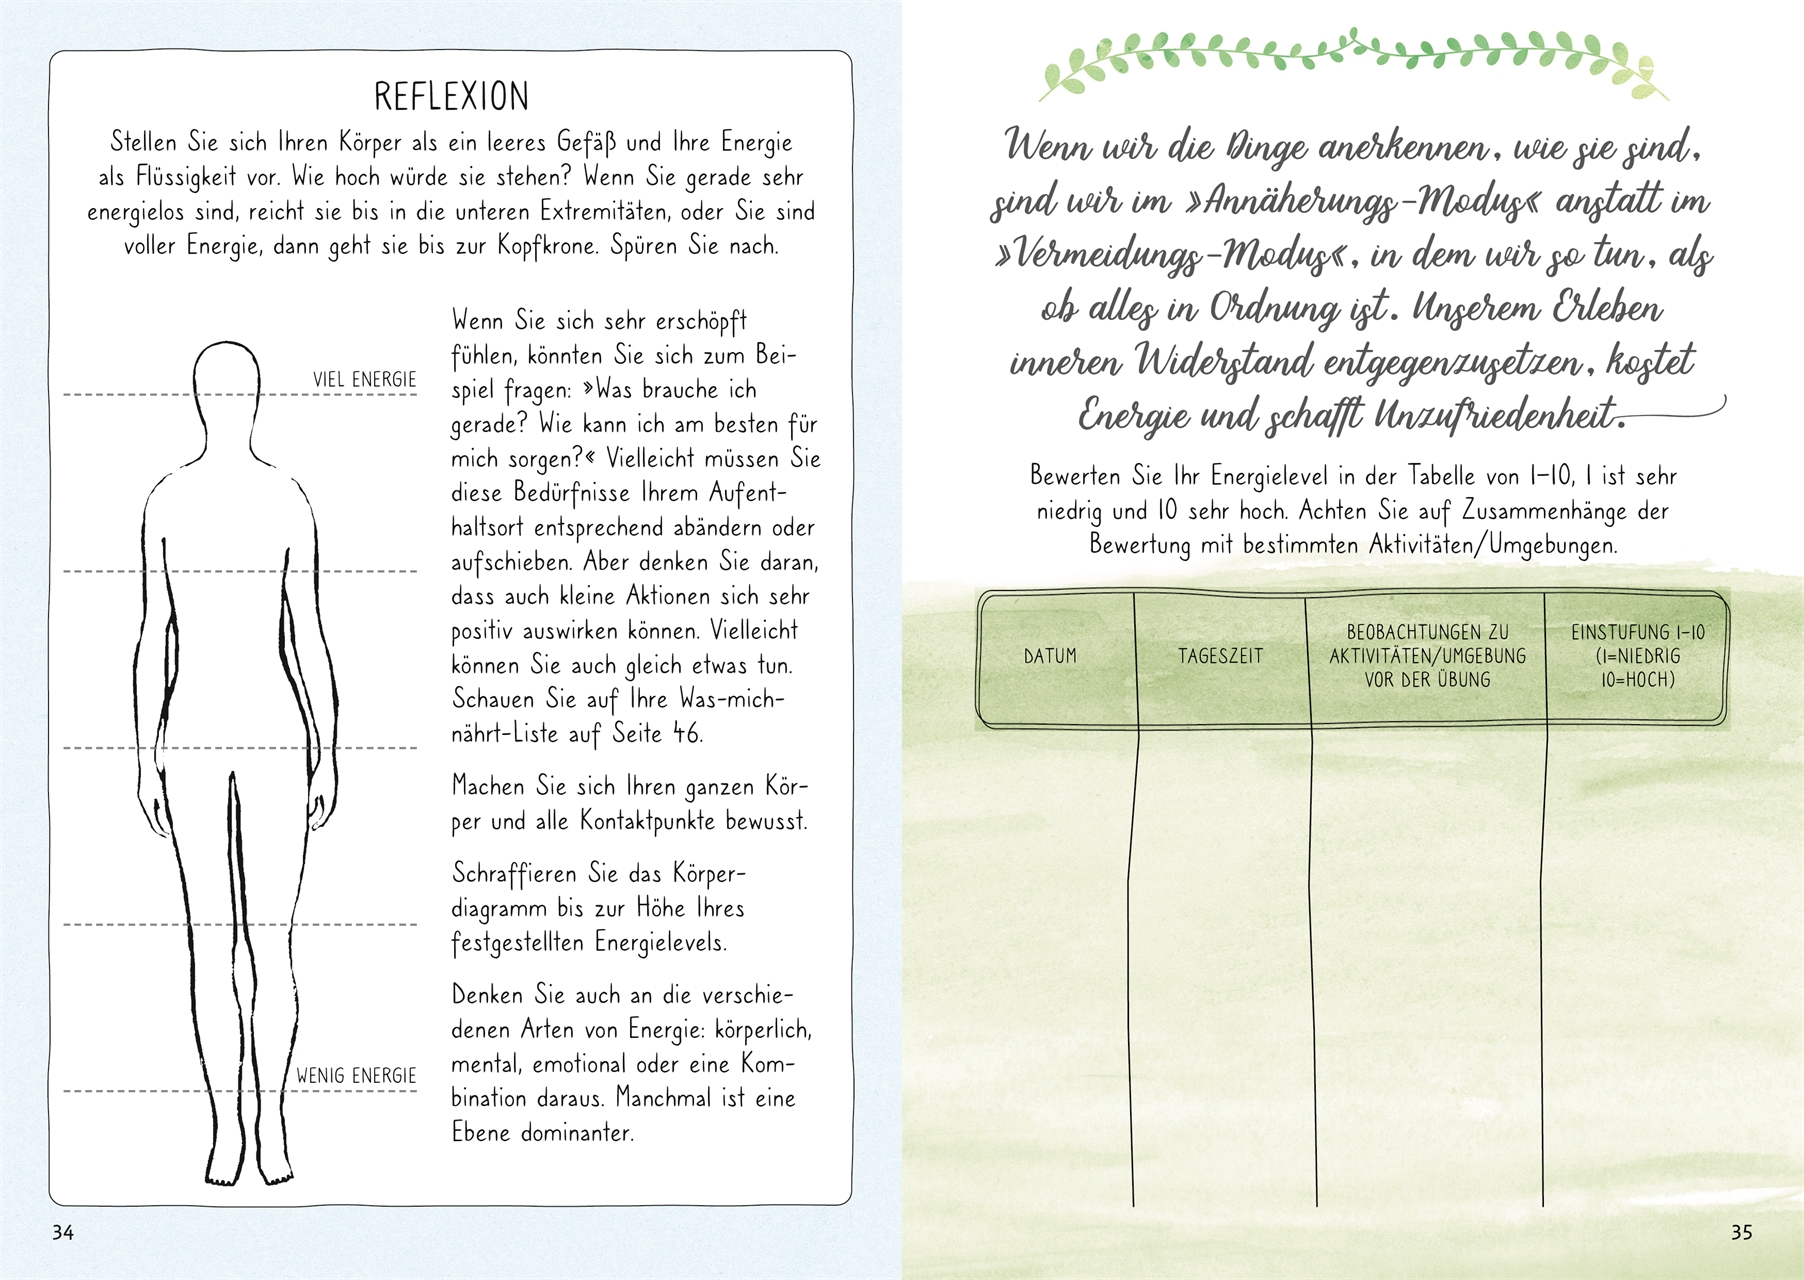 REFLEXION
Stellen Sie sich Ihren Körper als ein leeres Gefäß und Ihre Energie
als Flüssigkeit vor. Wie hoch würde sie stehen? Wenn Sie gerade sehr
energielos sind, reicht sie bis in die unteren Extremitäten, oder Sie sind
voller Energie, dann geht sie bis zur Kopfkrone. Spüren Sie nach.
VIEL ENERGIE
WENIG ENERGIE
Wenn Sie sich sehr erschöpft
fühlen, könnten Sie sich zum Bei-
spiel fragen: »Was brauche ich
gerade? Wie kann ich am besten für
mich sorgen?« Vielleicht müssen Sie
diese Bedürfnisse Ihrem Aufent-
haltsort entsprechend abändern oder
aufschieben. Aber denken Sie daran,
dass auch kleine Aktionen sich sehr
positiv auswirken können. Vielleicht
können Sie auch gleich etwas tun.
Schauen Sie auf Ihre Was-mich-
nährt-Liste auf Seite 46.
Machen Sie sich Ihren ganzen Kör-
per und alle Kontaktpunkte bewusst.
Schraffieren Sie das Körper-
diagramm bis zur Höhe Ihres
festgestellten Energielevels.
Denken Sie auch an die verschie-
denen Arten von Energie: körperlich,
mental, emotional oder eine Kom-
bination daraus. Manchmal ist eine
Ebene dominanter.
34
Wenn wir die Dinge anerkennen, wie sie sind,
sind wir im »Annäherungs-Modus« anstatt im
»Vermeidungs-Modus«, in dem wir so tun, als
ob alles in Ordnung ist. Unserem Erleben
inneren Widerstand entgegenzusetzen, kostet
Energie und schafft Unzufriedenheit.
Bewerten Sie Ihr Energielevel in der Tabelle von 1–10, 1 ist sehr
niedrig und 10 sehr hoch. Achten Sie auf Zusammenhänge der
Bewertung mit bestimmten Aktivitäten/Umgebungen.
DATUM
TAGESZEIT
BEOBACHTUNGEN ZU
AKTIVITÄTEN/UMGEBUNG
VOR DER ÜBUNG
EINSTUFUNG 1–10
(1=NIEDRIG
10=HOCH)
35